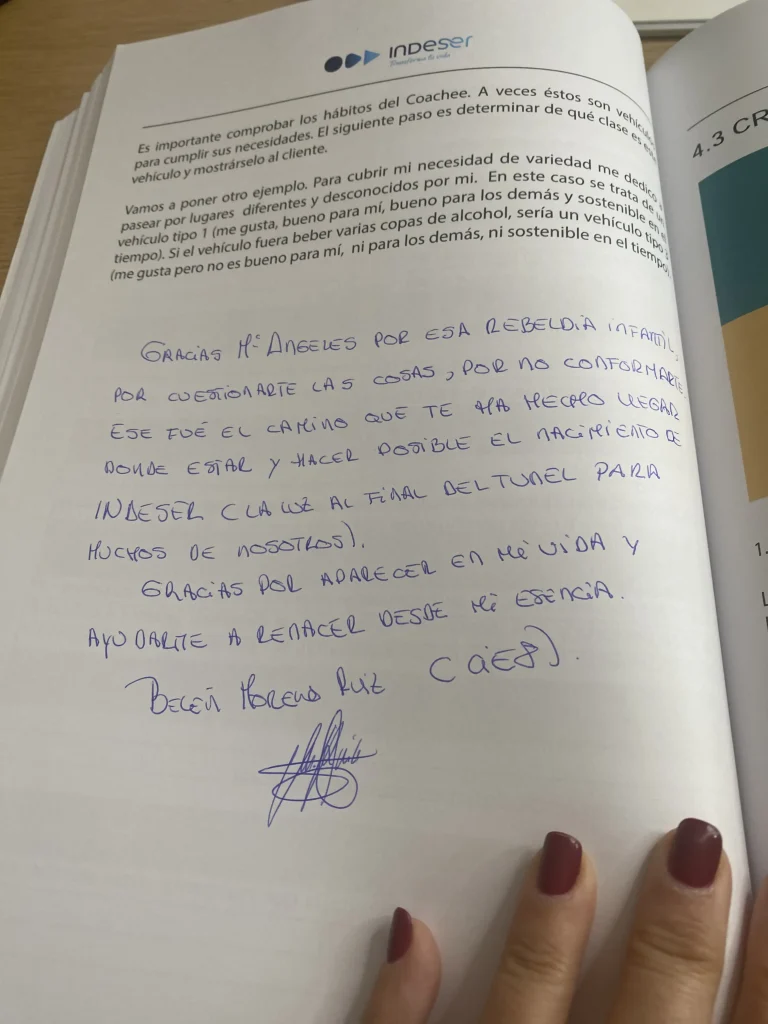 INDESER
Transforma tu vida
Es importante comprobar los hábitos del Coachee. A veces éstos son
para cumplir sus necesidades. El siguiente paso es determinar de qué clase es
vehículo y mostrárselo al cliente.
Vamos a poner otro ejemplo. Para cubrir mi necesidad de variedad me dedico a
pasear por lugares diferentes y desconocidos por mi. En este caso se trata de
vehículo tipo 1 (me gusta, bueno para mí, bueno para los demás y sostenible en el
tiempo). Si el vehículo fuera beber varias copas de alcohol, sería un vehículo tipo
(me gusta pero no es bueno para mí, ni para los demás, ni sostenible en el tiempo)
GRACIAS Mª ANGELES POR ESA REBELDIA INFANTIL,
POR CUESTIONARTE LAS COSAS, POR NO CONFORMARTE
ESE FUÉ EL CAMINO QUE TE HA HECHO LLEGAR
DONDE ESTAR Y HACER POSIBLE EL NACIMIENTO DE
INDESER (LA LUZ AL FINAL DEL TUNEL PARA
MUCHOS DE NOSOTROS).
GRACIAS POR APARECER EN MI VIDA Y
AYUDARME A RENACER DESDE MI ESENCIA.
BELÉN MORENO RUIZ (QIE8).
4.3 CR
1.